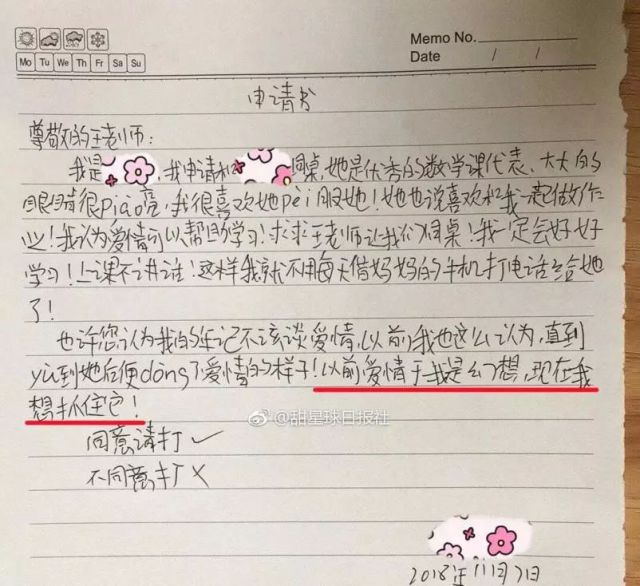 Memo No.
Mo Tu We Th Fr Sa Su
Date / /
申请书
尊敬的王老师:
我是,我申请和同桌,她是优秀的数学课代表、大大的
眼睛很piào亮,我很喜欢她pèi服她!她也说喜欢和我一起做作
业!我认为爱情可以帮助学习!求求王老师让我们同桌!我一定会好好
学习!上课不讲话!这样我就不用每天借妈妈的手机打电话给她
了!
也许您认为我的年记不该谈爱情,以前我也这么认为,直到
yù到她后便dǒng了爱情的样子!以前爱情于我是幻想,现在我
想抓住它!
@甜星球日报社
同意请打✓
不同意打×
2018年11月7日